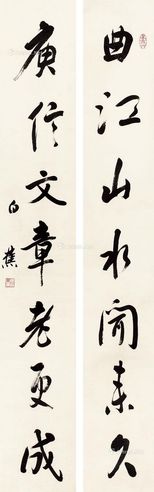 曲江山水闻来久
庾信文章老更成
白蕉